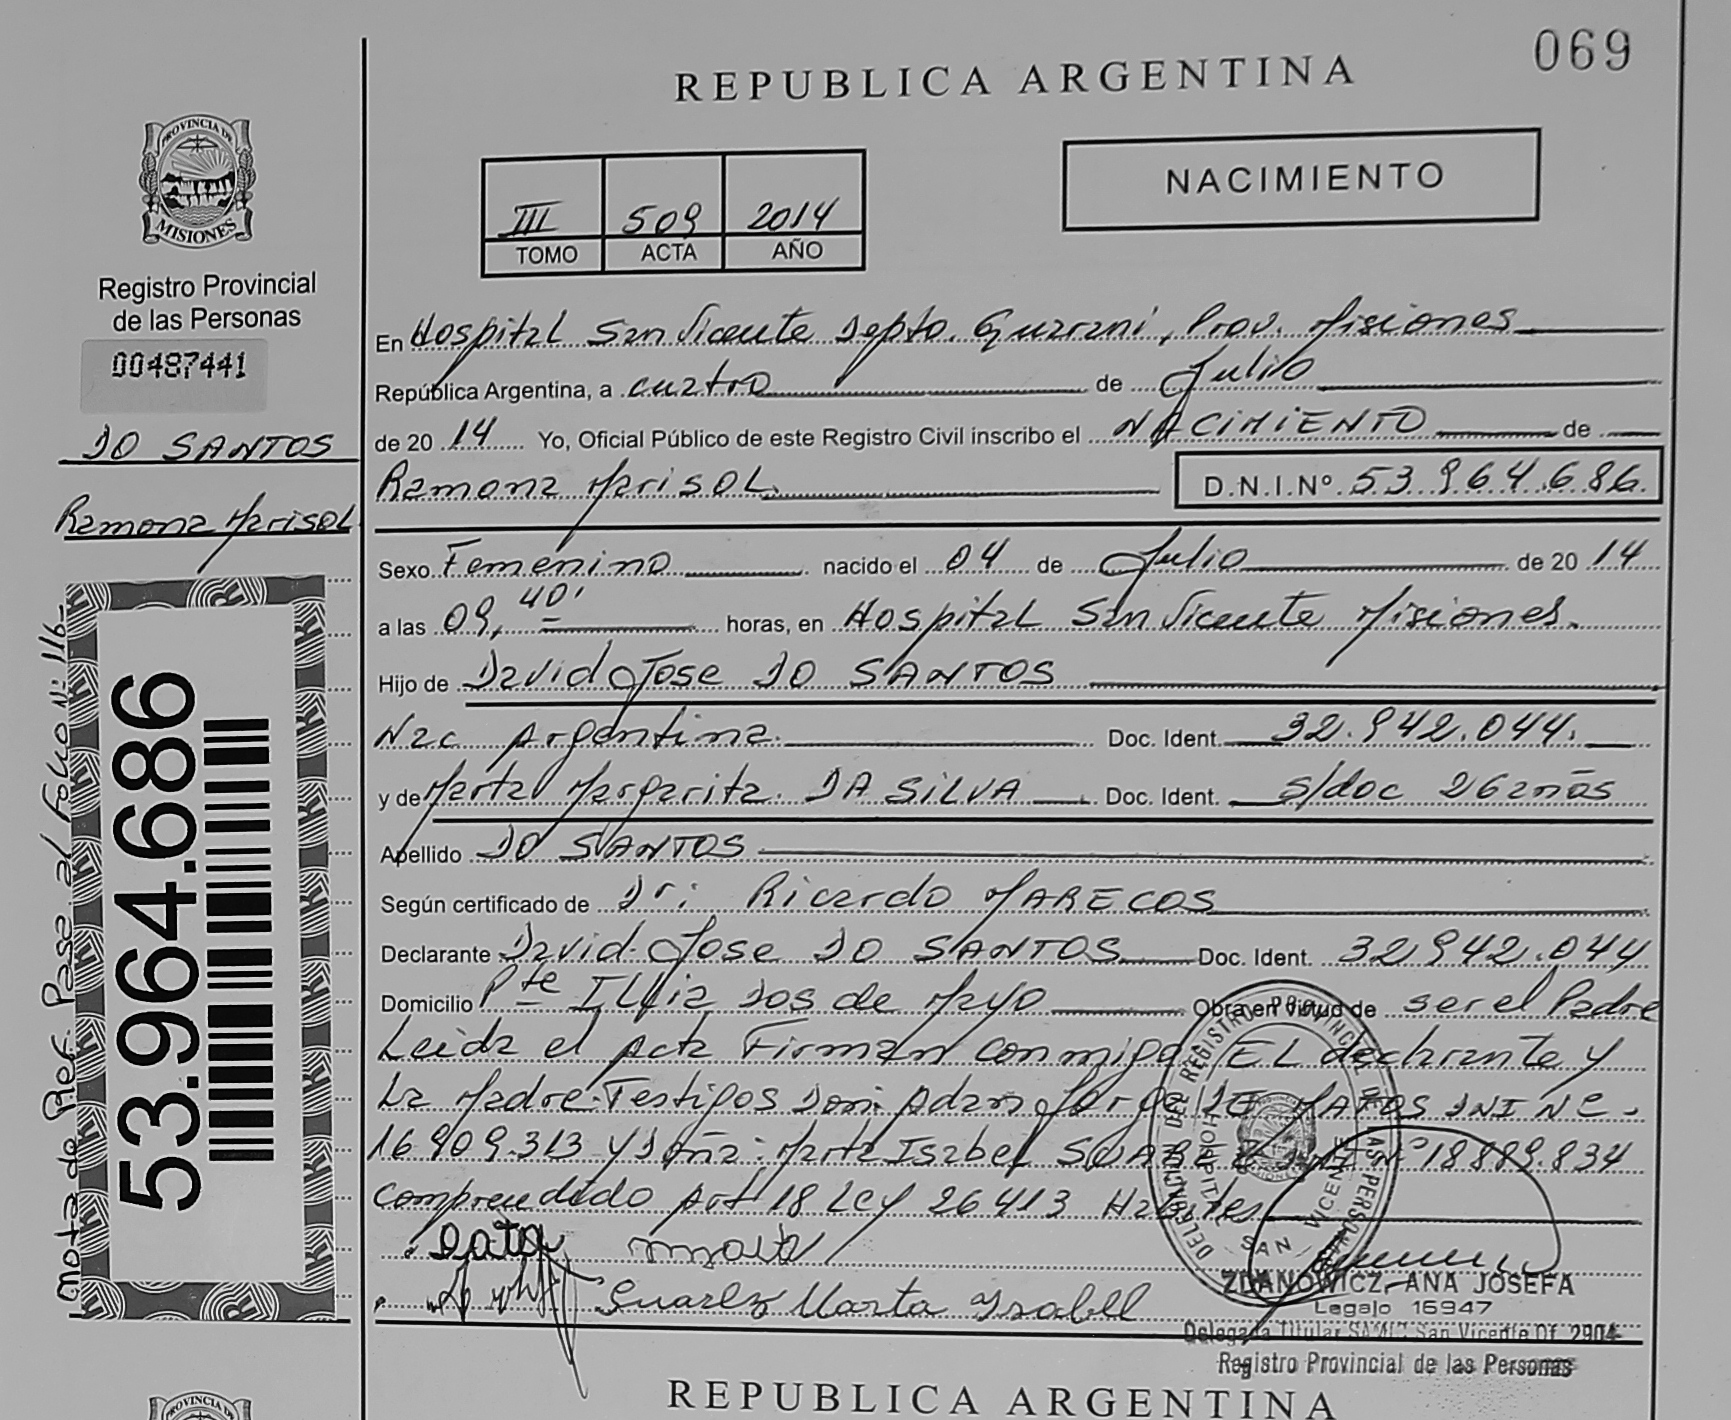 069
REPUBLICA ARGENTINA
PROVINCIA DE
MISIONES
Registro Provincial
de las Personas
00487441
DO SANTOS
Ramona Marisol
Nota de Ref. Pasa al Folio Nº 116-
53.964.686
NACIMIENTO
III 509 2014
TOMO ACTA AÑO
En Hospital San Vicente Depto. Guarani, Prov. Misiones
República Argentina, a cuatro de Julio
de 20 14 Yo, Oficial Público de este Registro Civil inscribo el NACIMIENTO de
Ramona Marisol D.N.I.Nº 53.964.686.
Sexo Femenino nacido el 04 de Julio de 20 14
a las 09, 40' horas, en Hospital San Vicente Misiones.
Hijo de David Jose DO SANTOS
Nac Argentina. Doc. Ident. 32.942.044.
y de Marta Margarita DA SILVA Doc. Ident. s/doc 26 años
Apellido DO SANTOS
Según certificado de Dr: Ricardo MARECOS
Declarante David Jose DO SANTOS Doc. Ident. 32.942.044
Domicilio Pte ILLia Dos de Mayo Obra en Virtud de ser el Padre
Leida el Acta Firman conmigo EL declarante y
La Madre. Testigos Don: Adan Jorge DE MATOS DNI Nº.
16.909.313 y Doña: Marta Isabel SUAREZ DNI Nº 18889.834
comprendido Art 18 Ley 26413 Habiles
marta
Suarez Marta Ysabel
DELEGACION DEL REGISTRO PROVINCIAL DE LAS PERSONAS
SAN VICENTE
ZDANOWICZ, ANA JOSEFA
Legajo 16947
Delegada Titular SAMIC San Vicente Of. 2904
Registro Provincial de las Personas
REPUBLICA ARGENTINA
PROVINCIA DE